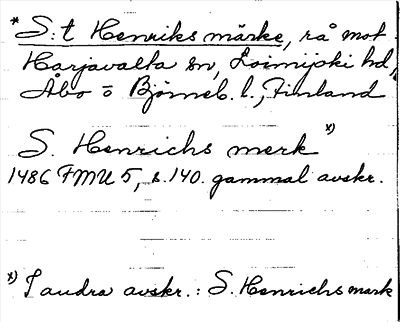 * S:t Henriks märke, rå mot
Harjavalta sn, Loimijoki hd,
Åbo o Björneb. l., Finland
S. Henrichs merk x)
1486 FMU 5, s. 140. gammal avskr.
x) I andra avskr.: S. Henrichs mark